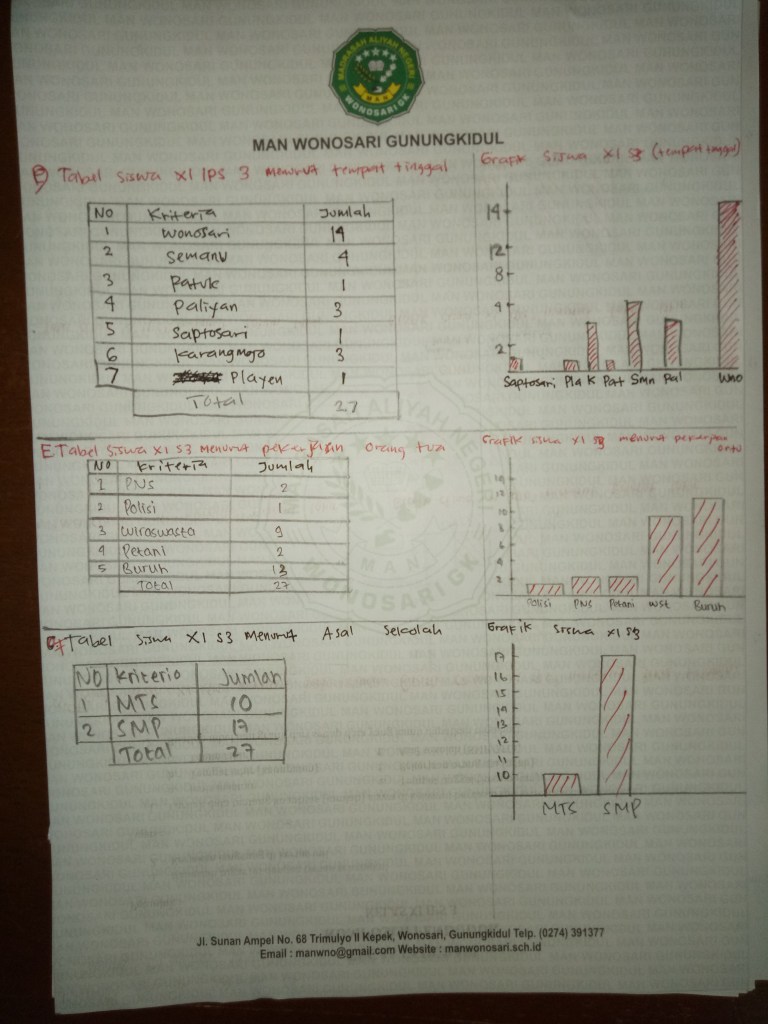 MADRASAH ALIYAH NEGERI
MAN
WONOSARI GK
MAN WONOSARI GUNUNGKIDUL
Tabel siswa XI IPS 3 menurut tempat tinggal
NO Kriteria Jumlah
1 Wonosari 14
2 Semanu 4
3 Patuk 1
4 Paliyan 3
5 Saptosari 1
6 Karangmojo 3
7 Playen 1
Total 27
Grafik siswa XI S3 (tempat tinggal)
14
12
8
4
2
Saptosari Pla K Pat Smn Pal Wno
E Tabel siswa XI S3 Menurut pekerjaan orang tua
NO Kriteria Jumlah
1 PNS 2
2 Polisi 1
3 Wiraswasta 9
4 Petani 2
5 Buruh 13
Total 27
Grafik siswa XI S3 menurut pekerjaan ortu
14
12
10
8
6
4
2
Polisi PNS Petani WST Buruh
Tabel siswa XI S3 Menurut Asal Sekolah
NO Kriteria Jumlah
1 MTS 10
2 SMP 17
Total 27
Grafik siswa XI S3
17
16
15
14
13
12
11
10
MTS SMP
MADRASAH ALIYAH NEGERI
MAN
WONOSARI GK
Jl. Sunan Ampel No. 68 Trimulyo II Kepek, Wonosari, Gunungkidul Telp. (0274) 391377
Email : manwno@gmail.com Website : manwonosari.sch.id